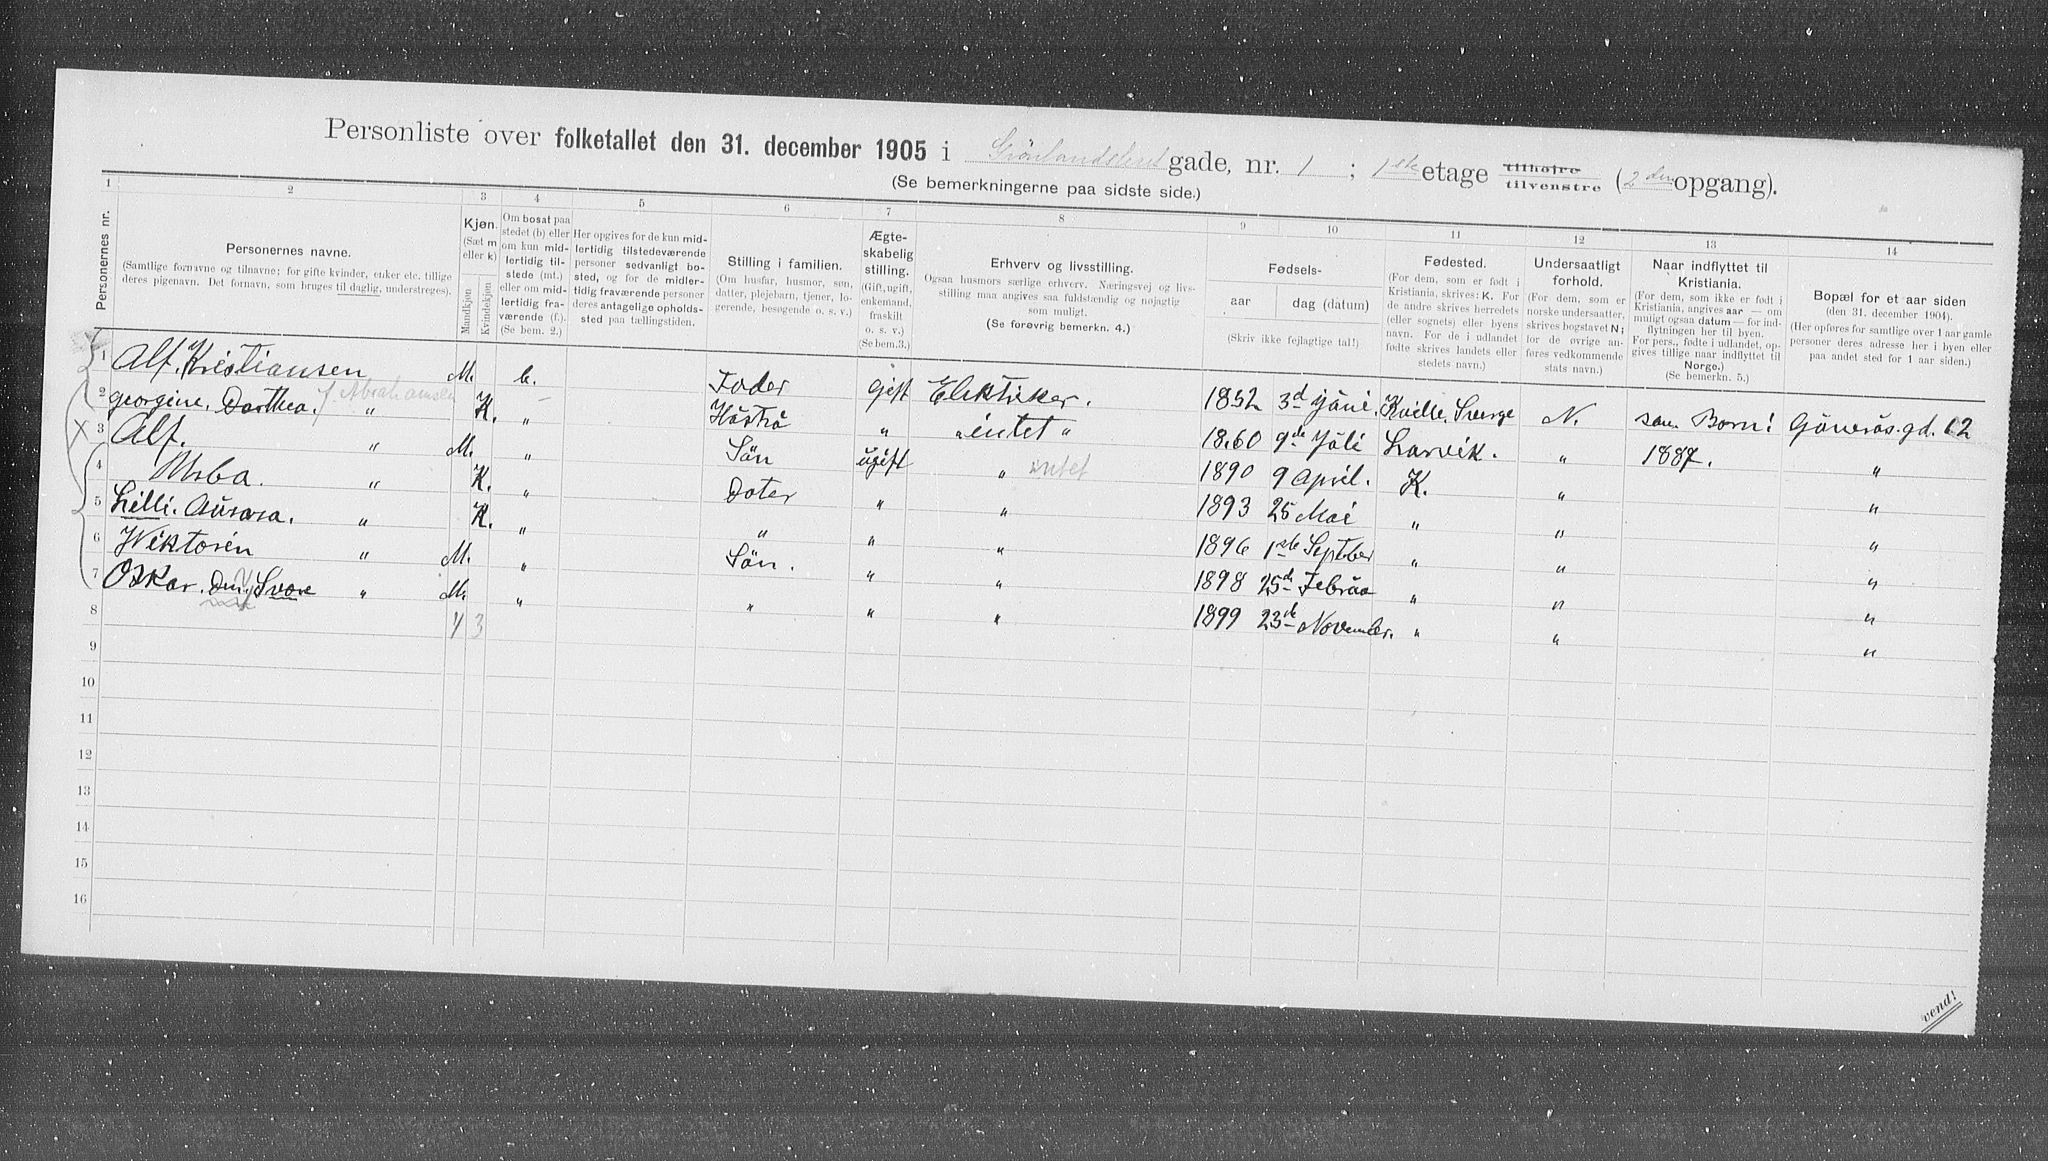 Personliste over folketallet den 31. december 1905 i Grönlandsleret gade, nr. 1 ; 1ste etage tilhøjre tilvenstre (2den opgang).
(Se bemerkningerne paa sidste side.)
1 2 3 4 5 6 7 8 9 10 11 12 13 14
Personernes nr.
Personernes navne.
(Samtlige fornavne og tilnavne; for gifte kvinder, enker etc. tillige deres pigenavn. Det fornavn, som bruges til daglig, understreges).
Kjøn.
(Sæt m eller k)
Mandkjøn
Kvindekjøn
Om bosat paa stedet (b) eller om kun midlertidig tilstede (mt.) eller om midlertidig fraværende (f.). (Se bem. 2.)
Her opgives for de kun midlertidig tilstedeværende personer sedvanligt bosted, og for de midlertidig fraværende personer deres antagelige opholdssted paa tællingstiden.
Stilling i familien.
(Om husfar, husmor, søn, datter, plejebarn, tjener, logerende, besøgende o. s. v.)
Ægteskabelig stilling.
(Gift, ugift, enkemand, fraskilt o. s. v.) (Se bem. 3.)
Erhverv og livsstilling.
Ogsaa husmors særlige erhverv. Næringsvej og livsstilling maa angives saa fuldstændig og nøjagtig som muligt.
(Se forøvrig bemerkn. 4.)
Fødsels-
aar
dag (datum)
(Skriv ikke fejlagtige tal!)
Fødested.
(For dem, som er født i Kristiania, skrives: K. For de andre skrives herredets (eller sognets) eller byens navn. For de i udlandet fødte skrives landets eller stedets navn.)
Undersaatligt forhold.
(For dem, som er norske undersaatter, skrives bogstavet N; for de øvrige anføres vedkommende stats navn.)
Naar indflyttet til Kristiania.
(For dem, som ikke er født i Kristiania, angives aar — om muligt ogsaa datum — for indflytningen her til byen. For pers., født i udlandet, opgives tillige naar indflyttet til Norge.)
(Se bemerkn. 5.)
Bopæl for et aar siden
(den 31. december 1904).
(Her opføres for samtlige over 1 aar gamle personer deres adresse her i byen eller paa andet sted for 1 aar siden.)
1 Alf. Kristiansen M. b. Fader Gift Elektriker. 1852 3d Júni. Kville. Sverge N. som Barn! Göneräs.gd. 12
2 Georgine. Dorthea. f Abrahamsen " K. " Hústrú " " intet " 18.60 9de Júli Larvik. " 1887. "
3 Alf. " M. " Sön ugift " intet 1890 9 April. K. " "
4 " K. " Doter " " 1893 25 Mai " " "
5 Lilli. Aurora. " K. " " " " 1896 1ste Septber " " "
6 Wiktorin " M. " Sön. " " 1898 25de Febrúa " " "
7 Oskar. Den. Svore " M. " " " " 1899 23de November. " " "
8 4 3
9
10
11
12
13
14
15
16
vend!